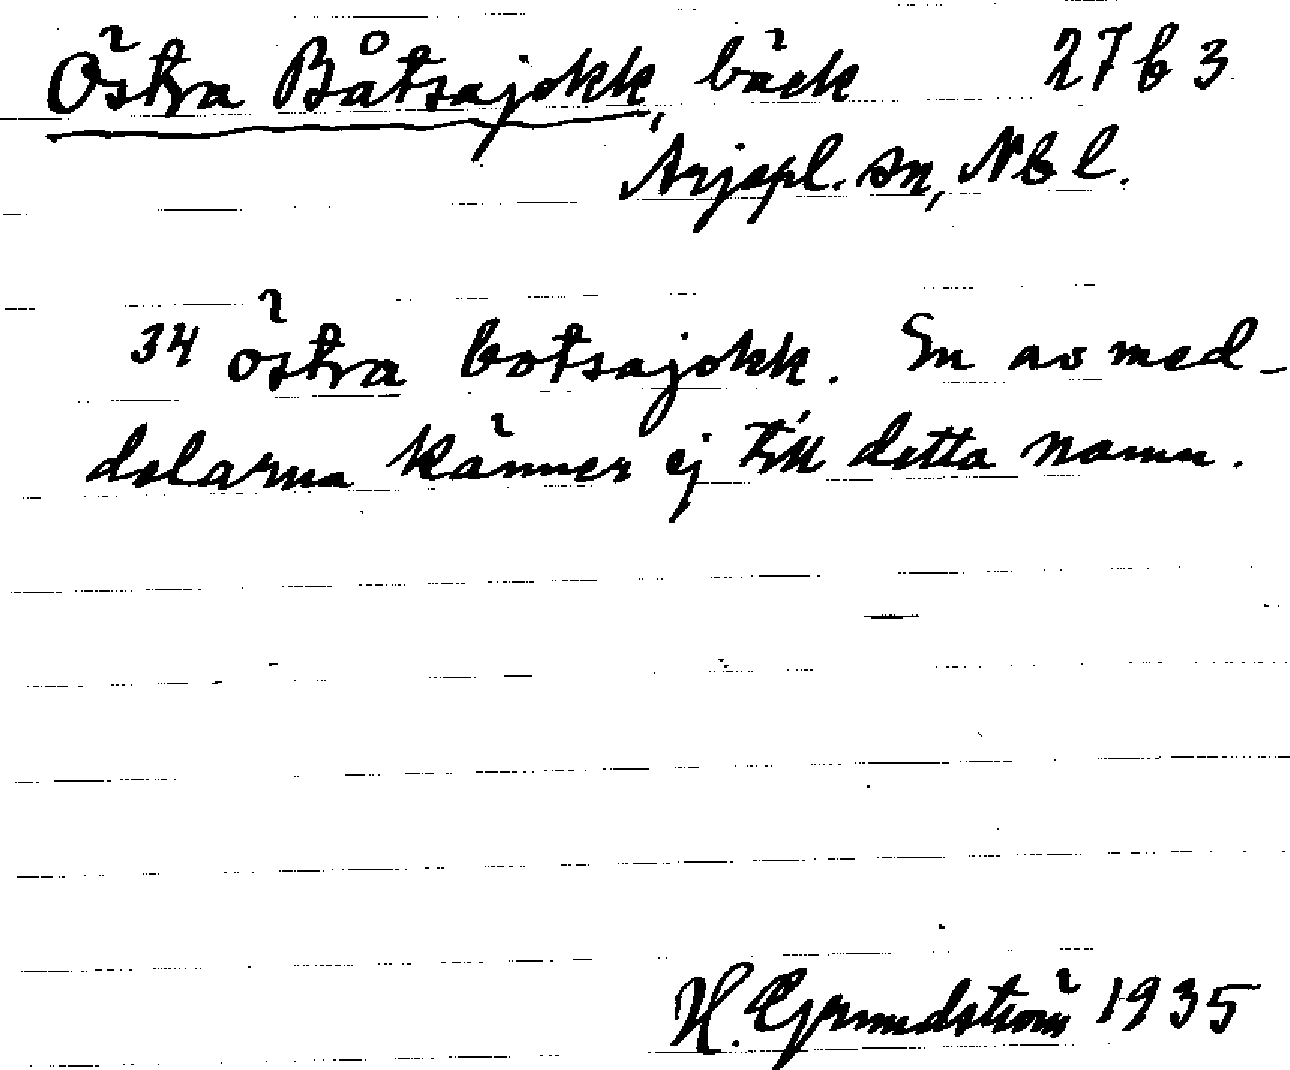 Östra Båtsajokk, bäck 27 b 3
Arjepl. sn, Nb l.
34 östra botsajokk. En av med-
delarna känner ej till detta namn.
H. Grundström 1935